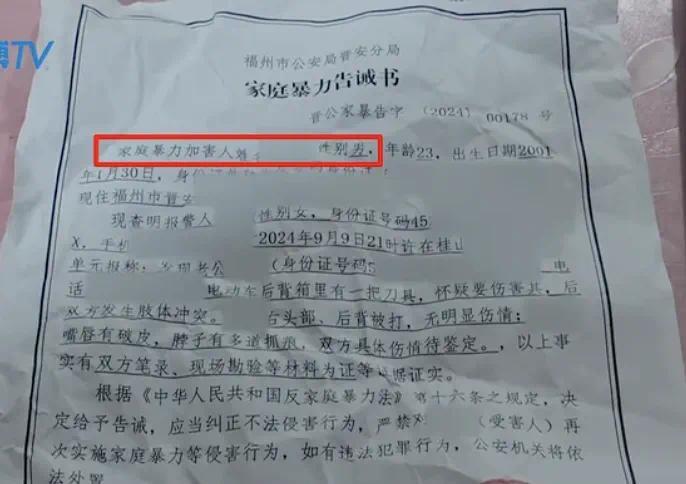 博TV
福州市公安局晋安分局
家庭暴力告诫书
晋公家暴告字〔2024〕00178 号
家庭暴力加害人 性别男，年龄23，出生日期2001
年1月30日，
现住福州市晋安
现查明报警人 性别女，身份证号码45
X，手机 2024年9月9日21时许在桂山
单元报称：发现老公 （身份证号码5 电
话 电动车后背箱里有一把刀具，怀疑要伤害其，后
双方发生肢体冲突。 右头部、后背被打，无明显伤情；
嘴唇有破皮，脖子有多道抓痕，双方具体伤情待鉴定。，以上事
实有双方笔录、现场勘验等材料为证等证据证实。
根据《中华人民共和国反家庭暴力法》第十六条之规定，决
定给予告诫，应当纠正不法侵害行为，严禁对 （受害人）再
次实施家庭暴力等侵害行为，如有违法犯罪行为，公安机关将依
法处置